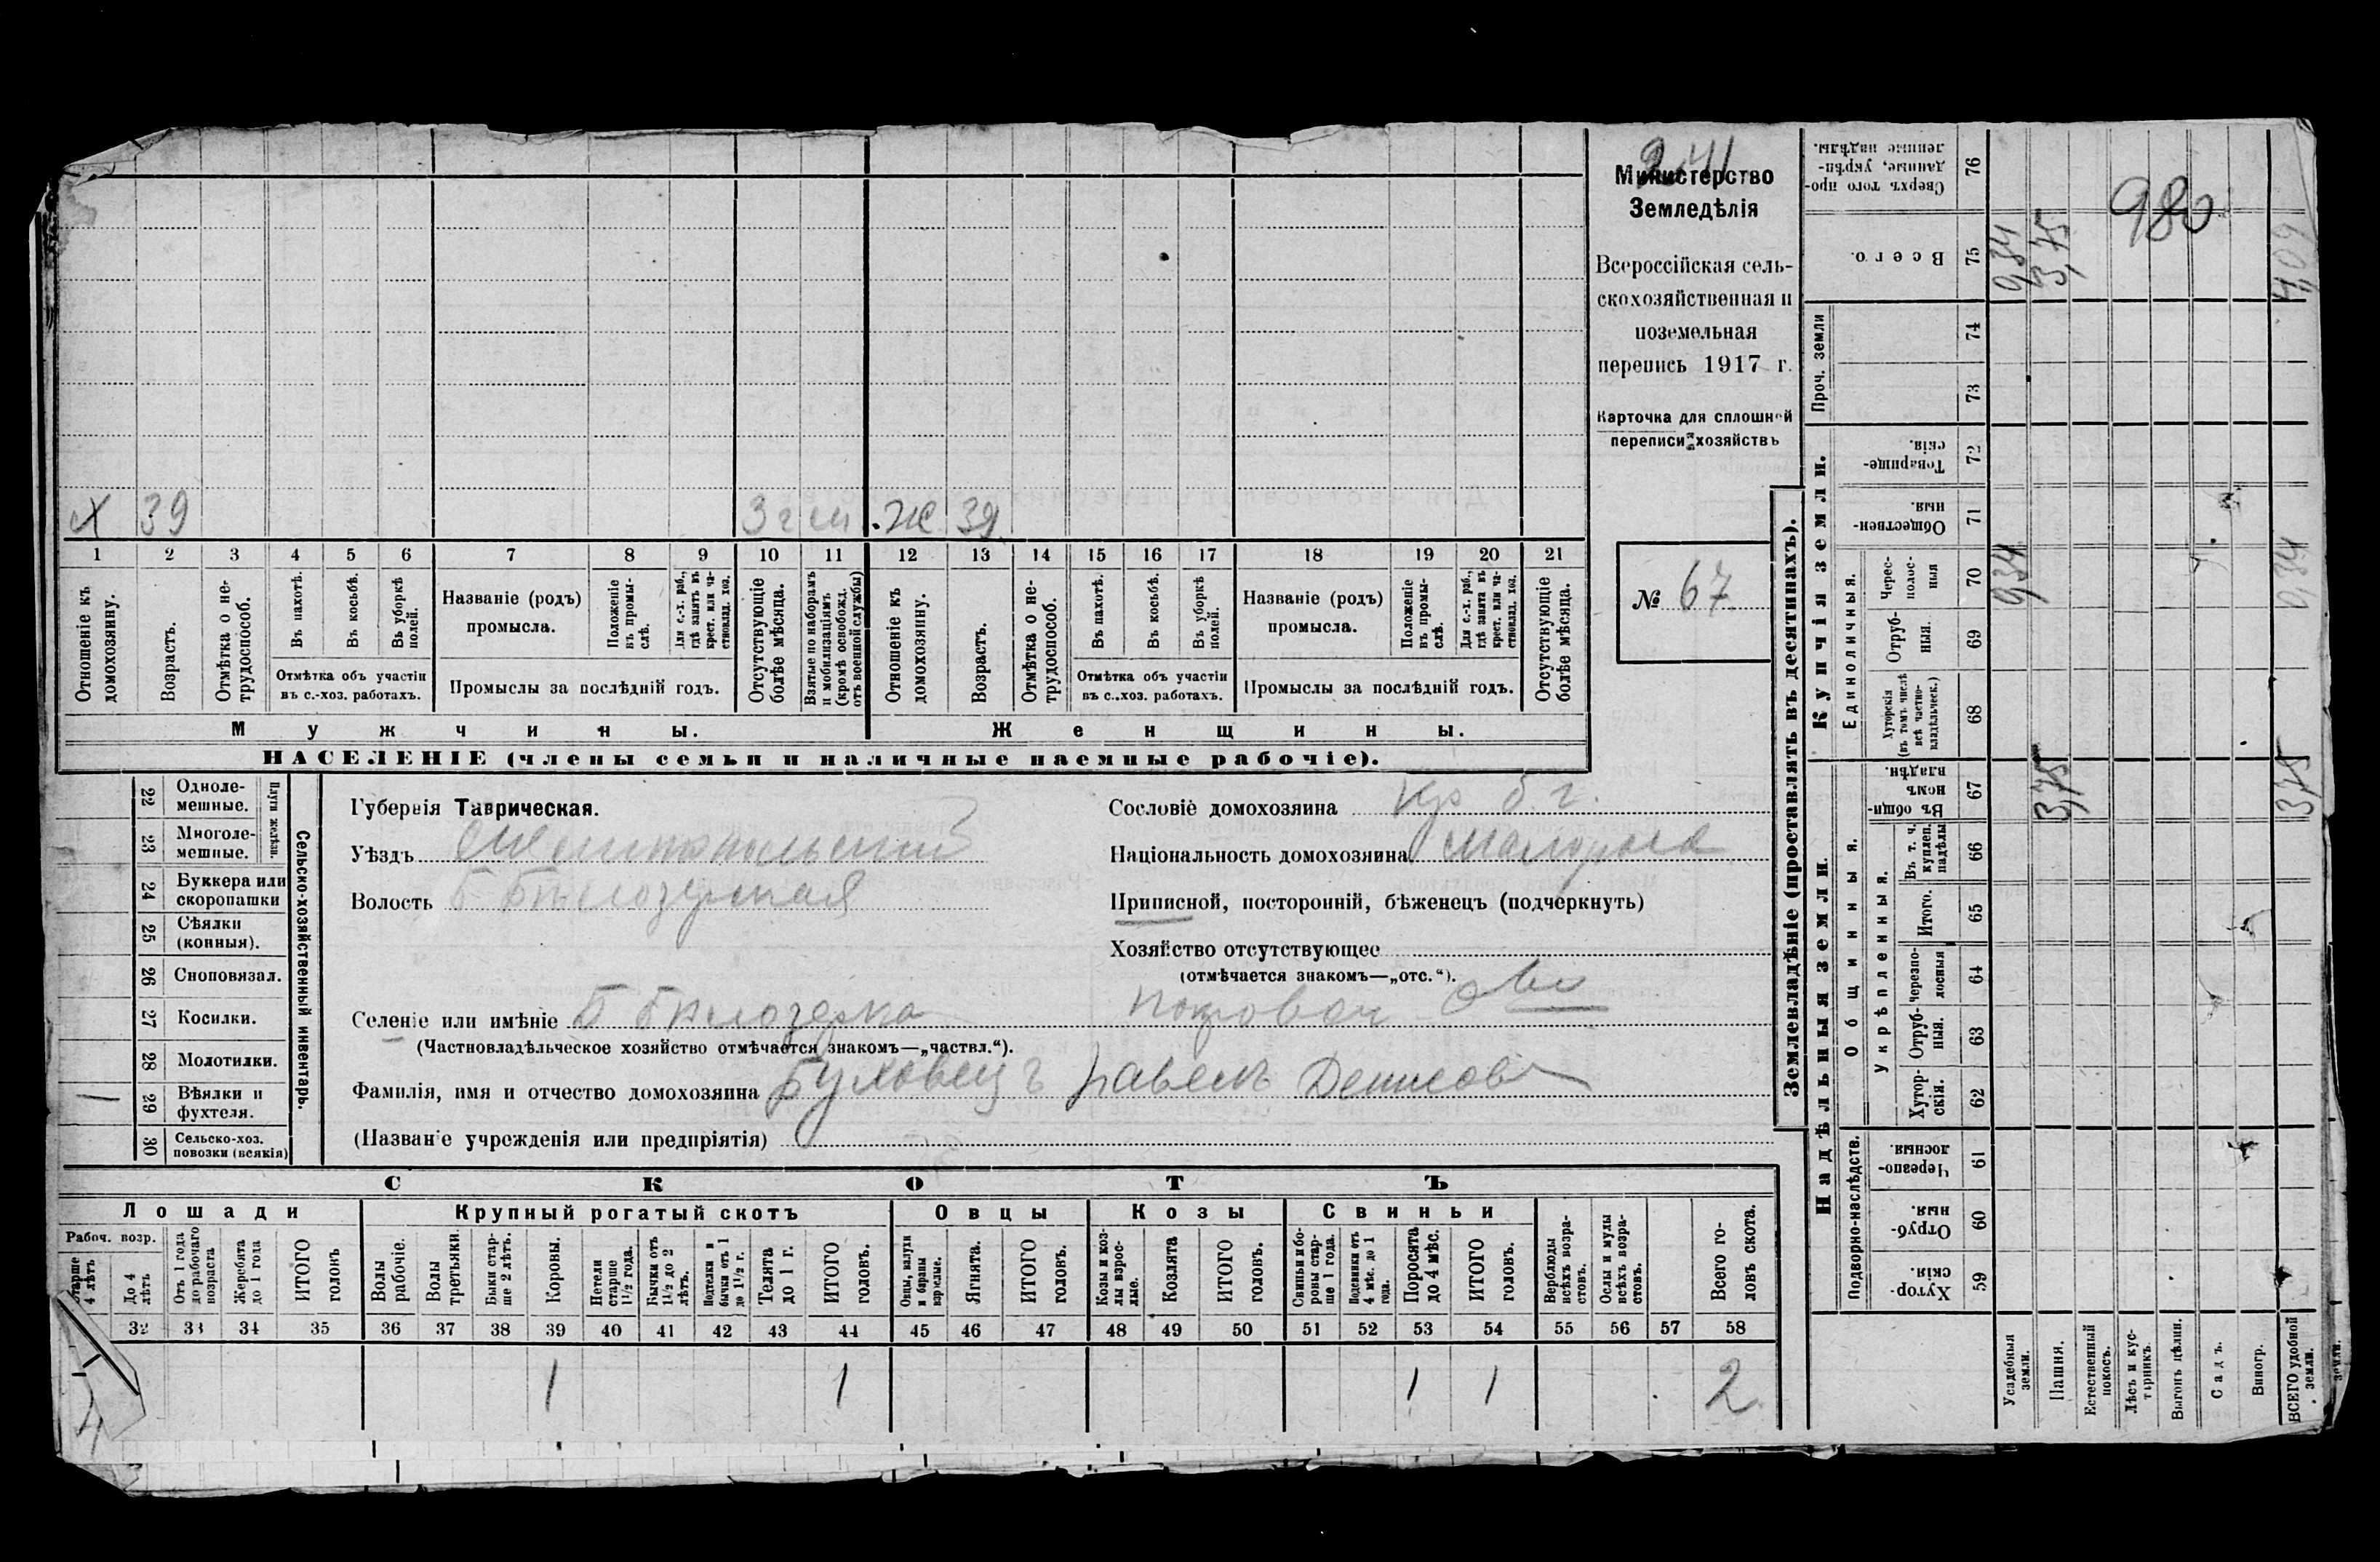 241
Министерство
Земледѣлія
Всероссійская сель-
скохозяйственная и
поземельная
перепись 1917 г.
Карточка для сплошной
переписи хозяйствъ
№ 67
х 39 3 г м ж 39
1 2 3 4 5 6 7 8 9 10 11 12 13 14 15 16 17 18 19 20 21
Отношеніе къ домохозяину.
Возрастъ.
Отмѣтка о не-трудоспособ.
Въ пахотѣ.
Въ косьбѣ.
Въ уборкѣ полей.
Отмѣтка объ участіи
въ с.-хоз. работахъ.
Названіе (родъ)
промысла.
Положеніе въ промы-слѣ.
Для с.-х. раб., гдѣ занятъ въ крест. или ча-стновлад. хоз.
Промыслы за послѣдній годъ.
Отсутствующіе болѣе мѣсяца.
Взятые по наборамъ и мобилизаціямъ (кромѣ освобожд. отъ военной службы)
Отношеніе къ домохозяину.
Возрастъ.
Отмѣтка о не-трудоспособ.
Въ пахотѣ.
Въ косьбѣ.
Въ уборкѣ полей.
Отмѣтка объ участіи
въ с.-хоз. работахъ.
Названіе (родъ)
промысла.
Положеніе въ промы-слѣ.
Для с.-х. раб., гдѣ занята въ крест. или ча-стновлад. хоз.
Промыслы за послѣдній годъ.
Отсутствующіе болѣе мѣсяца.
Мужчины. Женщины.
НАСЕЛЕНІЕ (члены семьи и наличные наемные рабочіе).
Сельско-хозяйственный инвентарь.
Плуги желѣзн.
22 Одноле-мешные.
23 Многоле-мешные.
24 Буккера или скоропашки
25 Сѣялки (конныя).
26 Сноповязал.
27 Косилки.
28 Молотилки.
29 Вѣялки и фухтеля.
30 Сельско-хоз. повозки (всякія)
Губернія Таврическая.
Уѣздъ Мелитопольский
Волость Б Бѣлозерская
Селеніе или имѣніе Б Бѣлозерка
(Частновладѣльческое хозяйство отмѣчается знакомъ—„частвл.“).
Фамилія, имя и отчество домохозяина Буховецъ Павелъ Денисов
(Названіе учрежденія или предпріятія)
Сословіе домохозяина кр б. г.
Національность домохозяина Малорос
Приписной, посторонній, бѣженецъ (подчеркнуть)
Хозяйство отсутствующее
(отмѣчается знакомъ—„отс.“).
СКОТЪ
Лошади Крупный рогатый скотъ Овцы Козы Свиньи
Рабоч. возр.
Старше 4 лѣтъ
До 4 лѣтъ
Отъ 1 года до рабочаго возраста
Жеребята до 1 года
ИТОГО головъ
Волы рабочіе.
Волы третьяки.
Быки стар-ше 2 лѣтъ.
Коровы.
Нетели старше 1½ года.
Бычки отъ 1½ до 2 лѣтъ.
Подтелки и бычки отъ 1 до 1½ г.
Телята до 1 г.
ИТОГО головъ.
Овцы, валухи и бараны взрослые.
Ягнята.
ИТОГО головъ.
Козы и коз-лы взрос-лые.
Козлята
ИТОГО головъ.
Свиньи и бо-ровы стар-ше 1 года.
Подсвинки отъ 4 мѣс. до 1 года.
Поросята до 4 мѣс.
ИТОГО головъ.
Верблюды всѣхъ возра-стовъ.
Ослы и мулы всѣхъ возра-стовъ.
Всего го-ловъ скота.
32 33 34 35 36 37 38 39 40 41 42 43 44 45 46 47 48 49 50 51 52 53 54 55 56 57 58
4 1 1 1 1 2
Землевладѣніе (проставлять въ десятинахъ).
Надѣльныя земли.
Купчія земли.
Проч. земли
Подворно-наслѣдств.
Общинныя.
Укрѣпленныя.
Единоличныя.
59 Хутор-скія.
60 Отруб-ныя.
61 Черезпо-лосныя
62 Хутор-скія.
63 Отруб-ныя.
64 Черезпо-лосныя
65 Итого.
66 Въ т. ч. куплен. надѣлы
67 Въ общи-номъ владѣн.
68 Хуторскія (въ томъ числѣ всѣ частно-владѣльческ.)
69 Отруб-ныя.
70 Черес-полос-ныя
71 Обществен-ныя.
72 Товарище-скія.
73 74
75 Всего.
76 Сверхъ того про-данные, укрѣп-ленные надѣлы.
Усадебныя земли. 0,34 0,34
Пашня. 3,75 3,75
Естественный покосъ.
Лѣсъ и кус-тарникъ.
Выгонъ цѣлин.
Садъ.
Виногр.
ВСЕГО удобной земли. 3,75 0,34 4,09
980